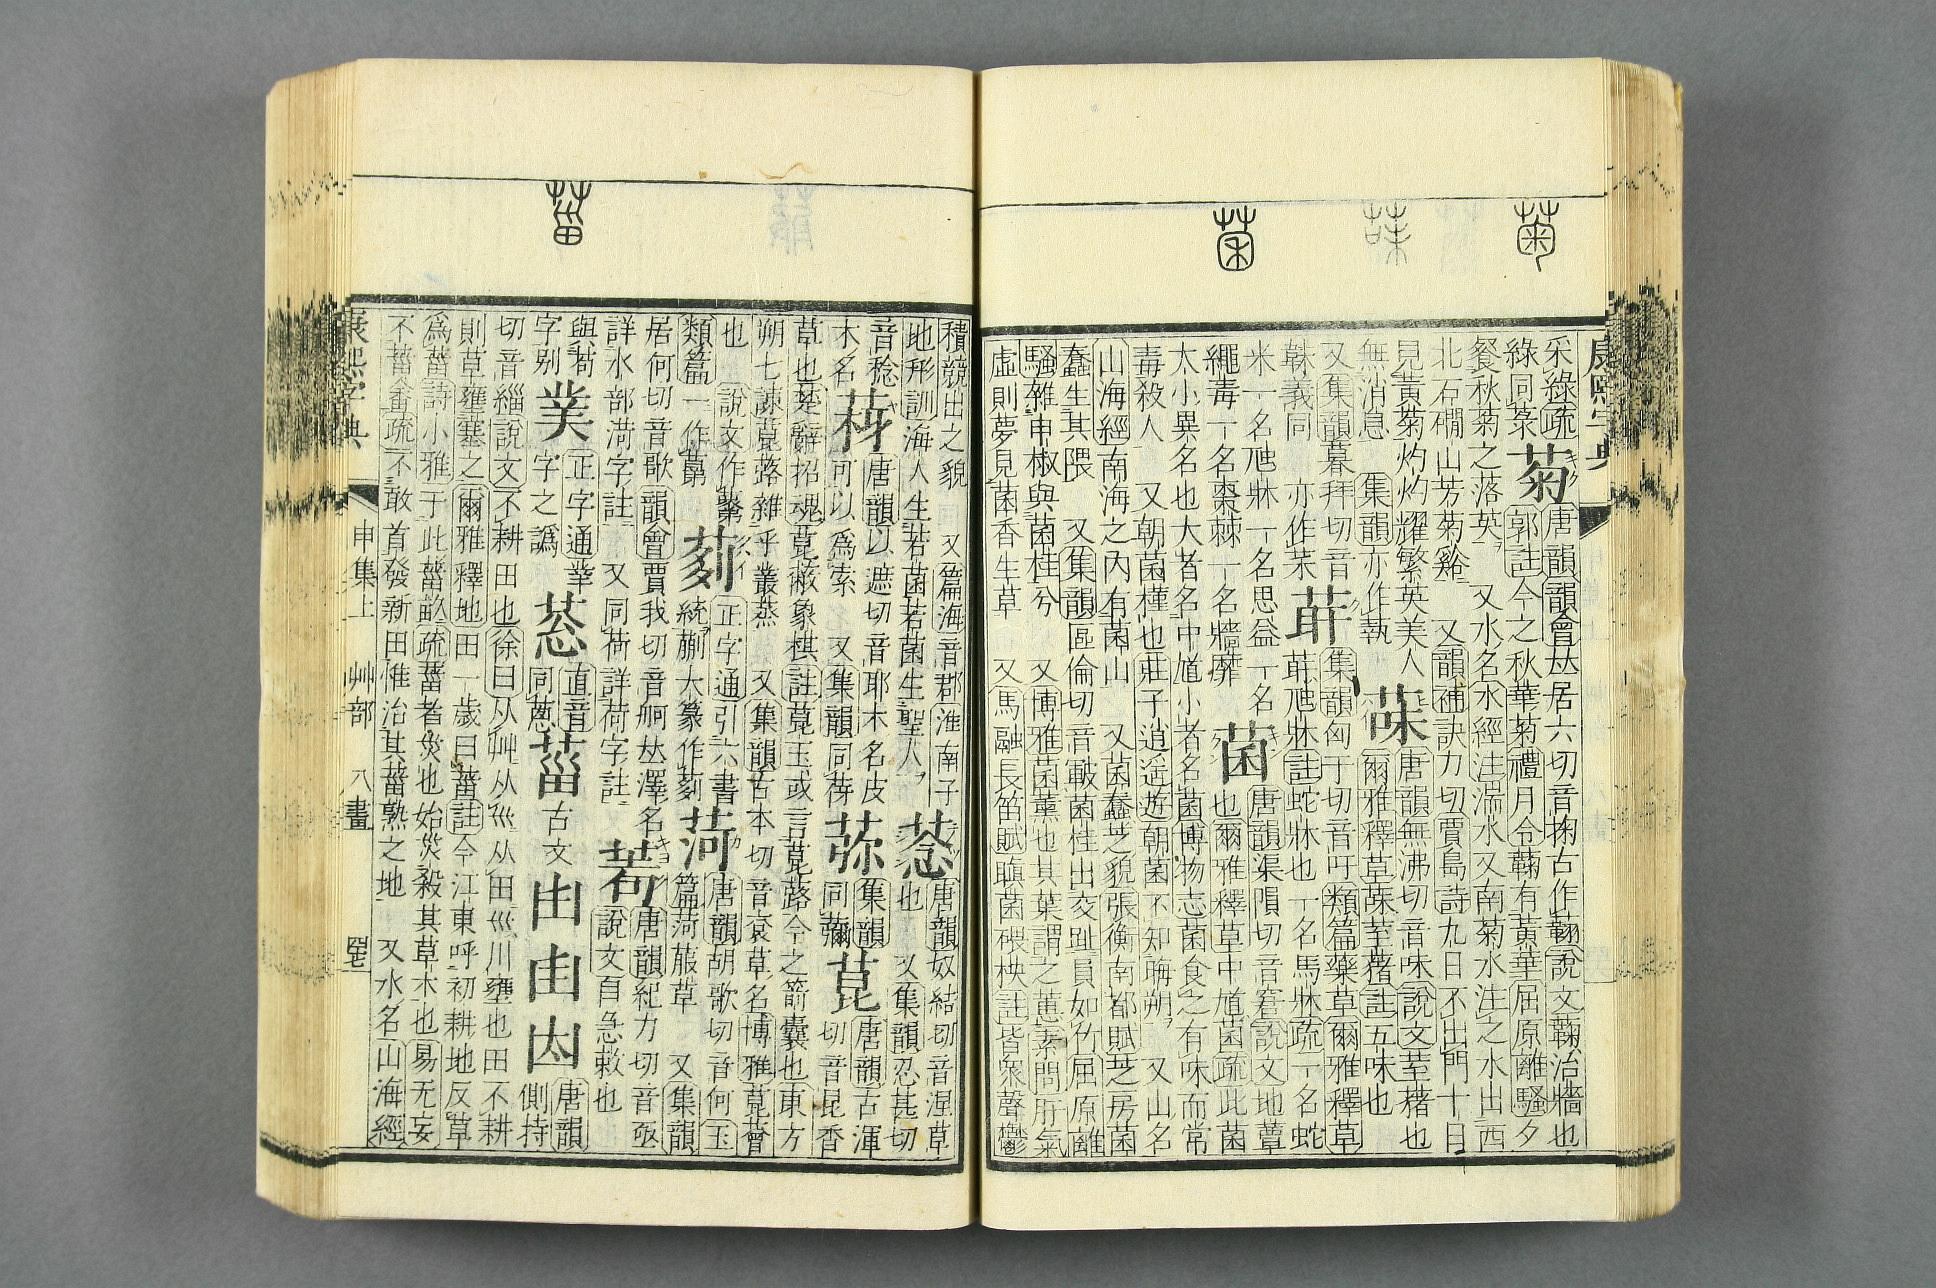 采綠疏
綠同菉
菊
唐韻韻會𠀤居六切音掬古作蘜說文蘜治牆也
郭註今之秋華菊禮月令蘜有黃華屈原離騷夕
餐秋菊之落英 又水名水經注湍水又南菊水注之水出西
北石磵山芳菊谿 又韻補訣力切賈島詩九日不出門十日
見黃菊灼灼耀繁英美人
無消息 集韻亦作䕮
菋
唐韻無沸切音味說文荎藸也
爾雅釋草菋荎藸註五味也
又集韻暮拜切音
韎義同 亦作茉
蓱
集韻匈于切音吁類篇藥草爾雅釋草
米一名虺牀一名思益一名
繩毒一名棗棘一名牆蘼
菌
唐韻渠隕切音窘說文地蕈
也爾雅釋草中馗菌疏此菌
大小異名也大者名中馗小者名菌博物志菌食之有味而常
毒殺人 又朝菌槿也莊子逍遙遊朝菌不知晦朔 又山名
山海經南海之內有菌山 又菌蠢芝貌張衡南都賦芝房菌
蠢生其隈 又集韻區倫切音囷菌桂出交趾員如竹屈原離
騷雜申椒與菌桂兮 又博雅菌薰也其葉謂之蕙素問肝氣
虛則夢見菌香生草 又馬融長笛賦䐜菌碨柍註皆衆聲鬱
積競出之貌 又篇海音郡淮南子
地形訓海人生若菌若菌生聖人
菍
唐韻奴結切音涅草
也 又集韻忍甚切
音稔
䓉
唐韻以遮切音耶木名皮
木名可以爲索 又集韻同䓉
𦯞
集韻
同彌
菎
唐韻古渾
切音昆香
草也楚辭招魂菎蔽象棋註菎玉或言菎蕗今之箭囊也東方
朔七諫菎蕗雜乎叢蒸 又集韻古本切音袞草名博雅菎蓸
也 說文作𦺞
類篇一作䔳
正字通引六書
統蒯大篆作
菏
唐韻胡歌切音何玉
篇菏菔草 又集韻
居何切音歌韻會賈我切音舸𠀤澤名
詳水部渮字註 又同荷詳荷字註
唐韻紀力切音亟
說文自急敕也
與苟
字別
菐
正字通菐
字之譌
菍
直音
同蔥
菑
古文
由
甶
𠧧
唐韻
側持
切音緇說文不耕田也徐曰从艸从巛从田巛川壅也田不耕
則草雍塞之爾雅釋地田一歲曰菑註今江東呼初耕地反草
爲菑詩小雅于此菑畝疏菑者災也始災殺其草木也易无妄
不菑畬疏不敢首發新田惟治其菑熟之地 又水名山海經
康熙字典
申集上 艸部 八畫